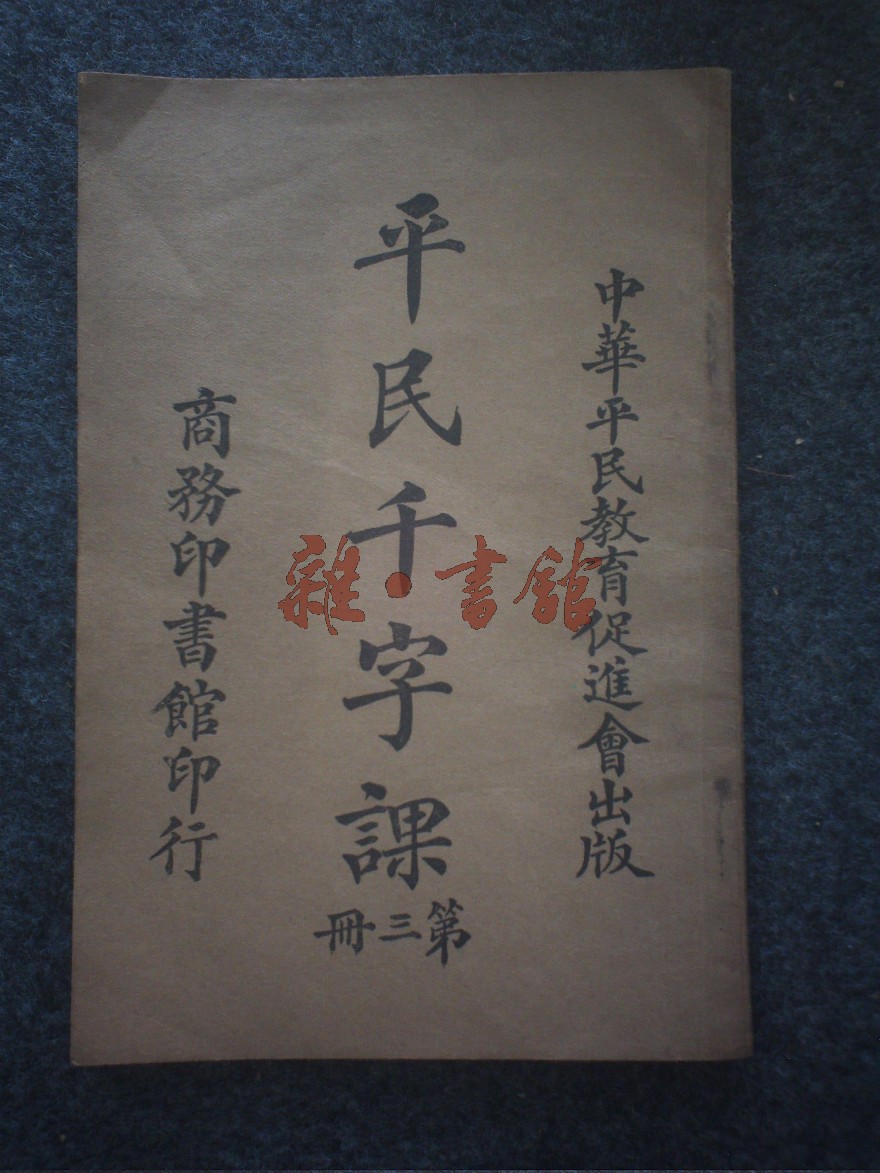 中華平民教育促進會出版
平民千字課
第三冊
商務印書館印行
雜·書館